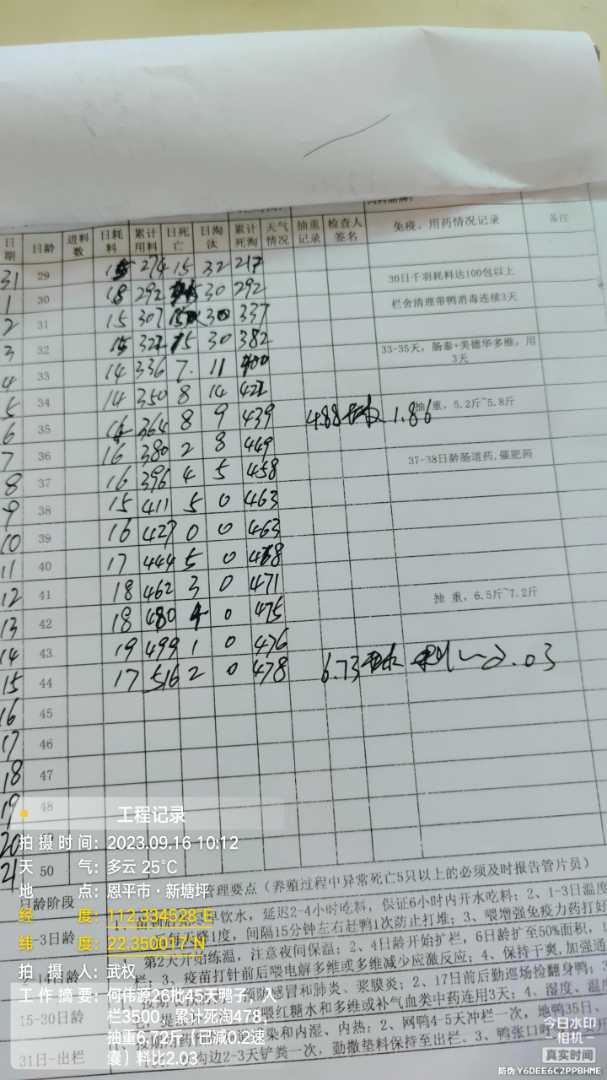 日期 日龄 进料数 日耗料 累计用料 日死亡 日淘汰 累计死淘 天气情况 抽重记录 检查人签名 免疫、用药情况记录 备注
31 29 15 274 15 32 217 30日千羽耗料达100包以上
1 30 18 292 30 292 栏舍清理带鸭消毒连续3天
2 31 15 307 30 337
3 32 15 15 30 382 33-35天，肠泰+美德华多维，用3天
4 33 14 336 7 11 400
5 34 14 350 8 14 422 抽 重，5.2斤~5.8斤
6 35 14 364 8 9 439 4.88 1.86
7 36 16 380 2 8 449 37-38日龄肠道药，催肥药
8 37 16 396 4 5 458
9 38 15 411 5 0 463
10 39 16 427 0 0 463
11 40 17 444 5 0 468
12 41 18 462 3 0 471 抽 重，6.5斤~7.2斤
13 42 18 480 4 0 475
14 43 19 499 1 0 476
15 44 17 516 2 0 478 6.73 2.03
16 45
17 46
18 47
19 48
20
21 50
日龄阶段 管理要点（养殖过程中异常死亡5只以上的必须及时报告管片员）
早饮水，延迟2-4小时吃料，保证6小时内开水吃料；2、1-3日温度
-3日龄 1度，间隔15分钟左右赶鸭1次防止打堆；3、喂增强免疫力药打好
第2天开始练温，注意夜间保温；2、4日龄开始扩栏，6日龄扩至50%面积，
栏；3、疫苗打针前后喂电解多维或多维减少应激反应；4、保持干爽，加强通
感冒和肺炎、浆膜炎；2、17日前后勤巡场捡翻身鸭；3
15-30日龄 喂红糖水和多维或补气血类中药连用3天；4、湿度、温度
染和内湿、内热；2、网鸭4-5天冲栏一次，地鸭35日、
31日-出栏 沟边2-3天铲粪一次，勤撒垫料保持至出栏。3、鸭张口呼
工程记录
拍摄时间：2023.09.16 10:12
天 气：多云 25℃
地 点：恩平市·新塘坪
经 度：112.334528°E
纬 度：22.350017°N
拍 摄 人：武权
工作摘要：何伟源26批45天鸭子，入
栏3500，累计死淘478，
抽重6.72斤（已减0.2速
囊）料比2.03
今日水印
相机
真实时间
防伪 Y6DEE6C2PPBHME